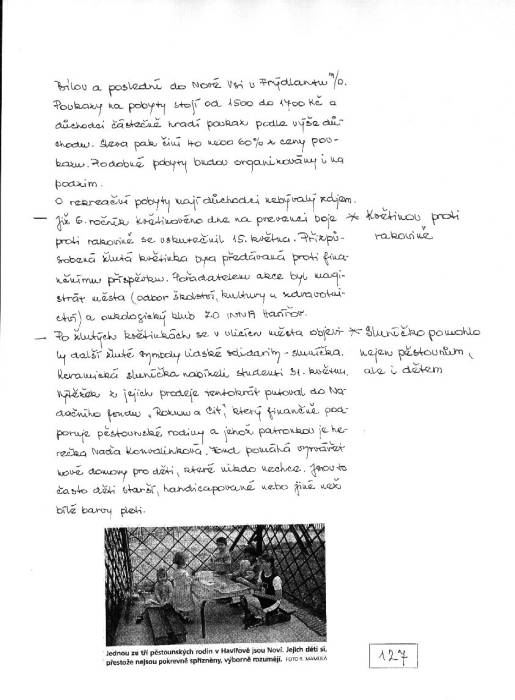 Bílov a poslední do Nové Vsi u Frýdlantu n/O.
Poukazy na pobyty stojí od 1500 do 1700 Kč a
důchodci částečně hradí poukaz podle výše dů-
chodu. Sleva pak činí 40 nebo 60% z ceny pou-
kazu. Podobné pobyty budou organizovány i na
podzim.
O rekreační pobyty mají důchodci nebývalý zájem.
— Již 6. ročník květinového dne na prevenci boje
proti rakovině se uskutečnil 15. května. Přizpů-
sobená žlutá květinka byla předávaná proti fina-
nčnímu příspěvku. Pořadatelem akce byl magi-
strát města (odbor školství, kultury a zdravotni-
ctví) a onkologický klub ZO Havířov.
* Květinou proti
rakovině
— Po žlutých květinkách se v ulicích města objevi-
ly další žluté symboly lidské solidarity - sluníčka.
Keramická sluníčka nabízeli studenti 31. květnu.
Výtěžek z jejich prodeje tentokrát putoval do Na-
dačního fondu „Rozum a Cit", který finančně pod-
poruje pěstounské rodiny a jehož patronkou je he-
rečka Naďa Konvalinková. Fond pomáhá vytvářet
nové domovy pro děti, které nikdo nechce. Jsou to
často děti starší, handicapované nebo jiné než
bílé barvy pleti.
* Sluníčko pomohlo
nejen pěstounům,
ale i dětem
Jednou ze tří pěstounských rodin v Havířově jsou Noví. Jejich děti si,
přestože nejsou pokrevně spřízněny, výborně rozumějí. FOTO R. MAMULA
127